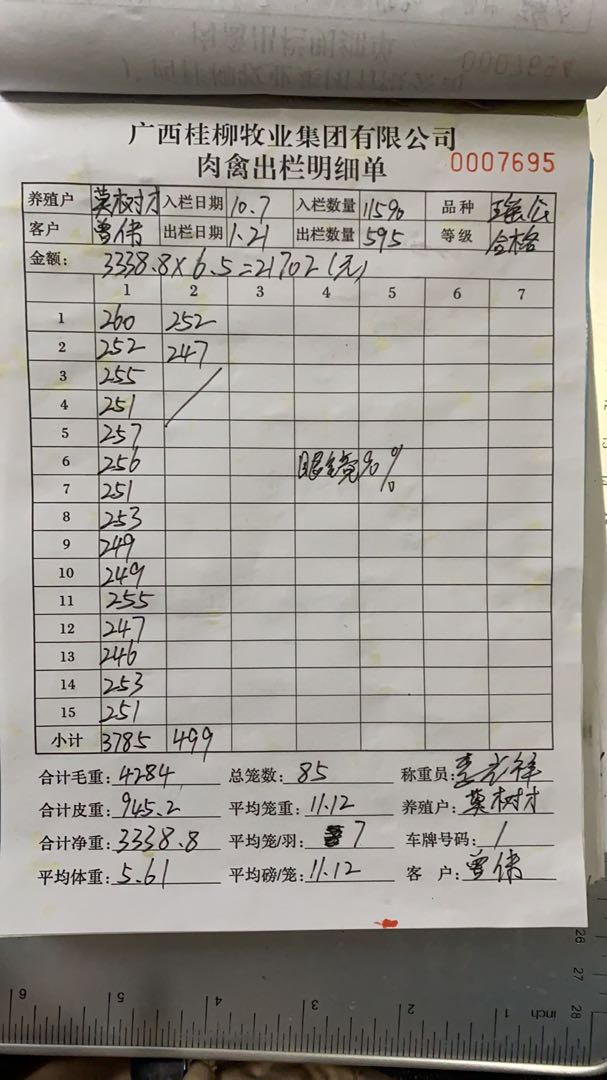 0007694
广西桂柳牧业集团有限公司
肉禽出栏明细单 0007695
养殖户 莫树才 入栏日期 10.7 入栏数量 11590 品种
客户 曾伟 出栏日期 1.21 出栏数量 595 等级 合格
金额: 3338.8×6.5=21702(元)
1 2 3 4 5 6 7
1 260 252
2 252 247
3 255
4 251
5 257
6 256 眼镜90%
7 251
8 253
9 249
10 249
11 255
12 247
13 246
14 253
15 251
小计 3785 499
合计毛重: 4284 总笼数: 85 称重员:
合计皮重: 945.2 平均笼重: 11.12 养殖户: 莫树才
合计净重: 3338.8 平均笼/羽: 7 车牌号码: /
平均体重: 5.61 平均磅/笼: 11.12 客 户: 曾伟
6 5 4 3 2 1 inch
26 27 28